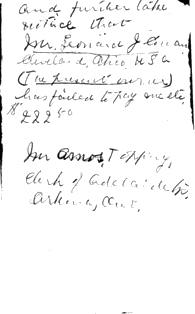 and further take
notice that
Mr. Leonard J.
Cleveland, Ohio U S A
(The present owner)
has failed to pay
$222 50
Mr Amos, Topping,
Clerk of Adelaide
Arkona, Ont.